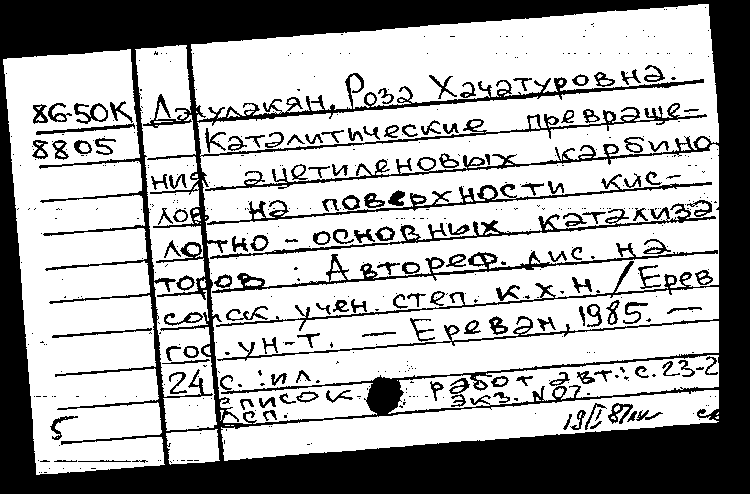 86-50К Джулакян, Роза Хачатуровна.
8805 Каталитические превраще-
ния ацетиленовых карбино
лов на поверхности кис-
лотно-основных катализа
торов : Автореф. дис. на
соиск. учен. степ. к.х.н. / Ерев
гос. ун-т. — Ереван, 1985. —
24 с. : ил.
Список работ авт.: с. 23-2
Дсп. Экз. N 07.
5 19/I 87